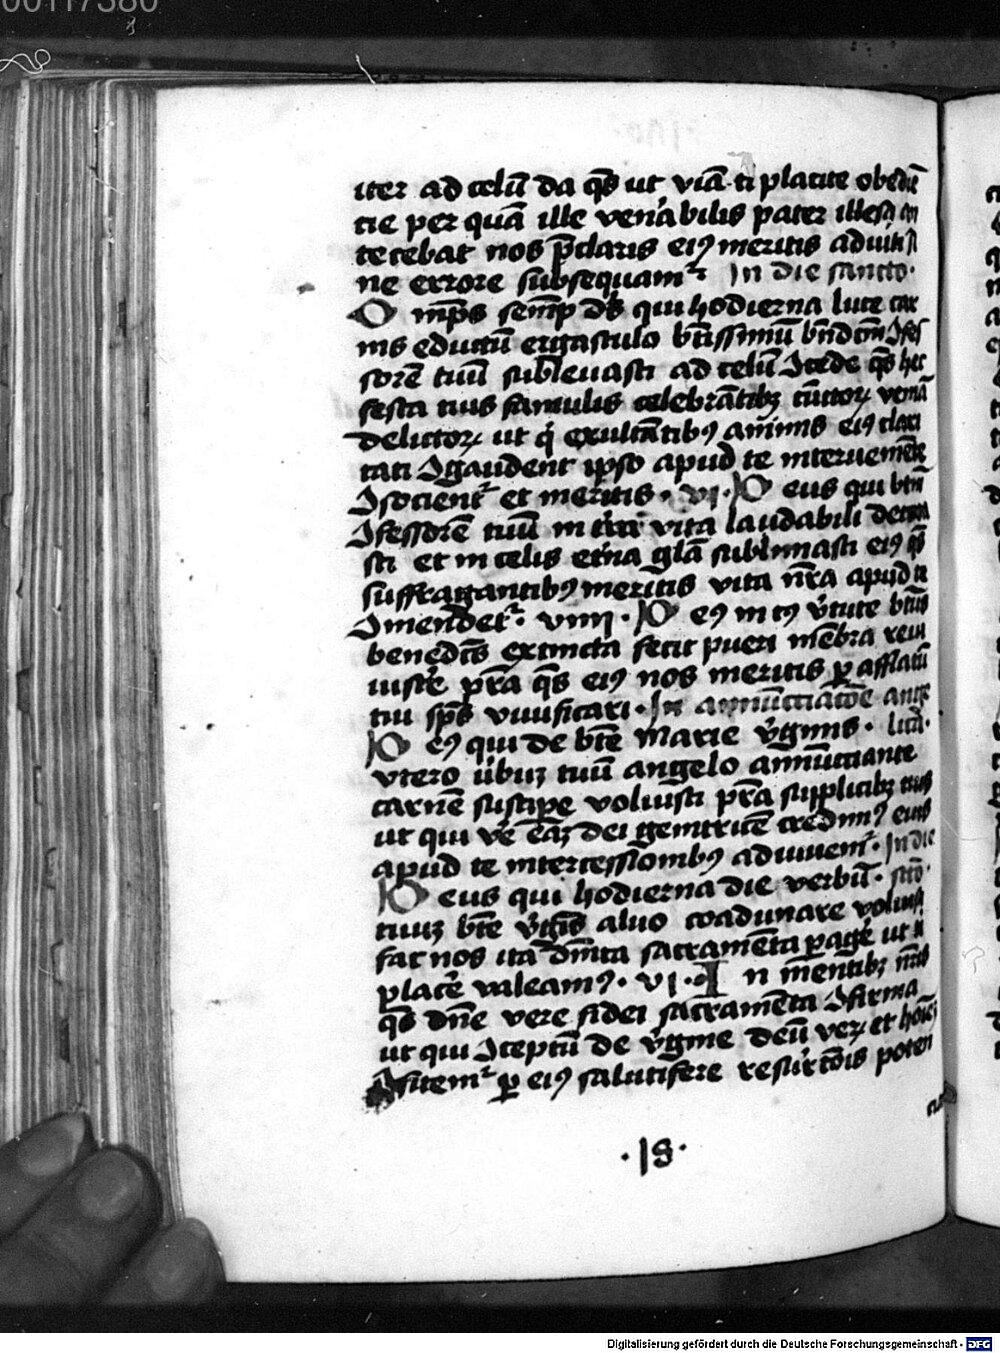 00117380
iter ad celū da q̄s ut viā ti placite obediē
tie per quā ille venẻabilis pater illesꝯ on
tecebat nos p̄claris eiꝰ meritis adiuti ſi
ne errore subsequamᷣ In die sancto·
O mp̄s semp̄ ds̄ qui hodierna luce car
nis eductū ergastulo btīssimū bn̄dcm̄ ꝯfes
sorē tuū sublevasti ad celū ꝯcede q̄s hec
festa tuis famulis celebrātibꝫ cūctoꝝ veniā
delictoꝝ ut q̇ exultātibꝰ animis eiꝰ clari
tati ꝯgaudent ipso apud te interveniēte
ꝯsocientᷣ et meritis· vi· D eus qui btm̄
ꝯfessorē tuū in tr̄a vita laudabili decora
sti et in celis et̄na glā sublimasti eiꝰ q̄s
suffragantibꝰ meritis vita nr̄a apud te
ꝯmendetᷣ· viiii· D eꝰ in cꝰ v̉tute bt̄us
benedcs̄ extincta fecit pueri mēbra revi
viscẻ pr̄a q̄s eiꝰ nos meritis ꝑ afflatū
tui spūs vivificari· In annūctiatōe ange
D eꝰ qui de bt̄e marie v̉ginis· lica·
utero v̉buꝫ tuū angelo annūctiante
carnē suscipe voluisti pr̄a supplicibꝫ tuis
ut qui vẻ eāꝫ dei genitricē credimꝰ eius
apud te intercessionibꝰ adiuvemᷣ· In die
D eus qui hodierna die verbū· scō·
tuuꝫ bt̄e v̉gīs alvo coadunare voluisti
fac nos ita dīnīta sacramēta ꝑagẻ ut ti
placẻ valeamꝰ· vi· I n mentibꝫ nr̄is
q̄s dn̄e vere fidei sacramēta ꝯfirma
ut qui ꝯceptū de v̉gine deū veꝝ et hoīeꝫ
ꝯfitemᷣ ꝑ eiꝰ salutifere resurc̄tōis poten
·18·
Digitalisierung gefördert durch die Deutsche Forschungsgemeinschaft - DFG